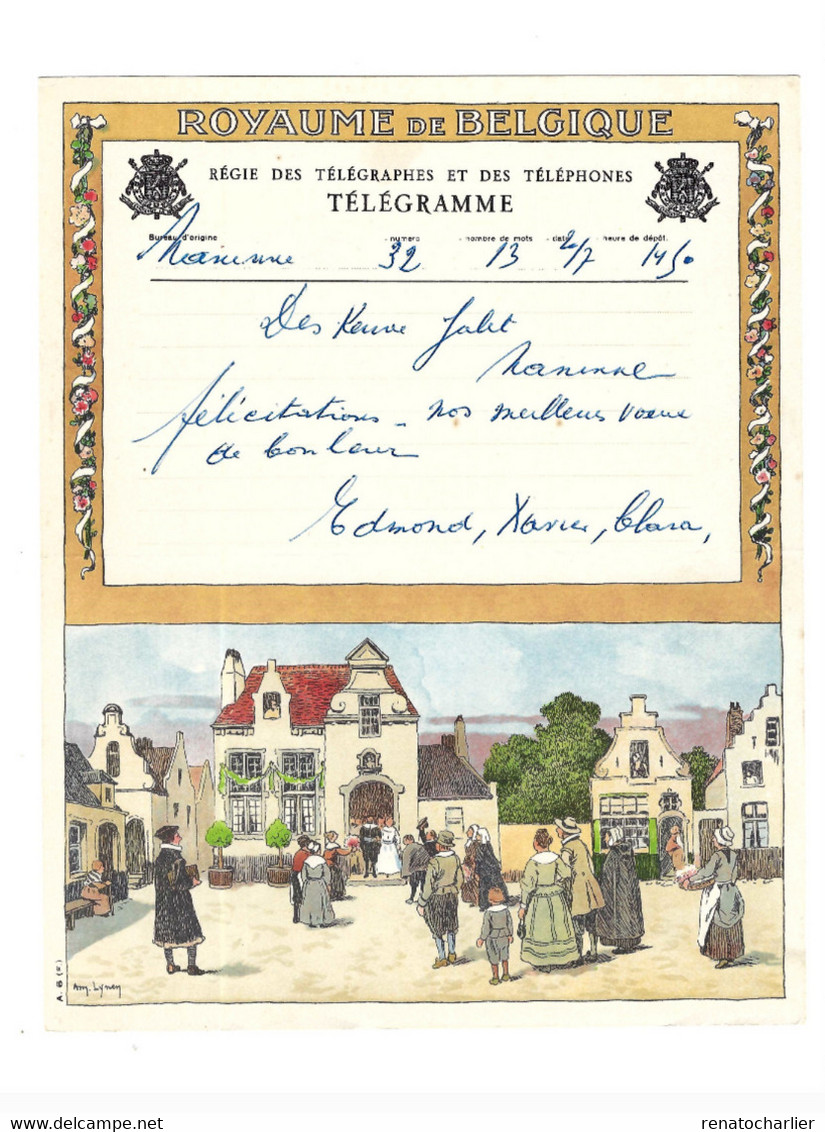 ROYAUME DE BELGIQUE
RÉGIE DES TÉLÉGRAPHES ET DES TÉLÉPHONES
TÉLÉGRAMME
Bureau d'origine numéro nombre de mots date heure de dépôt.
Naninne 32 13 2/7 1450
Jalet
Naninne
félicitations - nos meilleurs voeux
de bonheur
Edmond, Xavier, Clara,
A. 6 (F.)
Am. Lynen
delcampe.net
renatocharlier